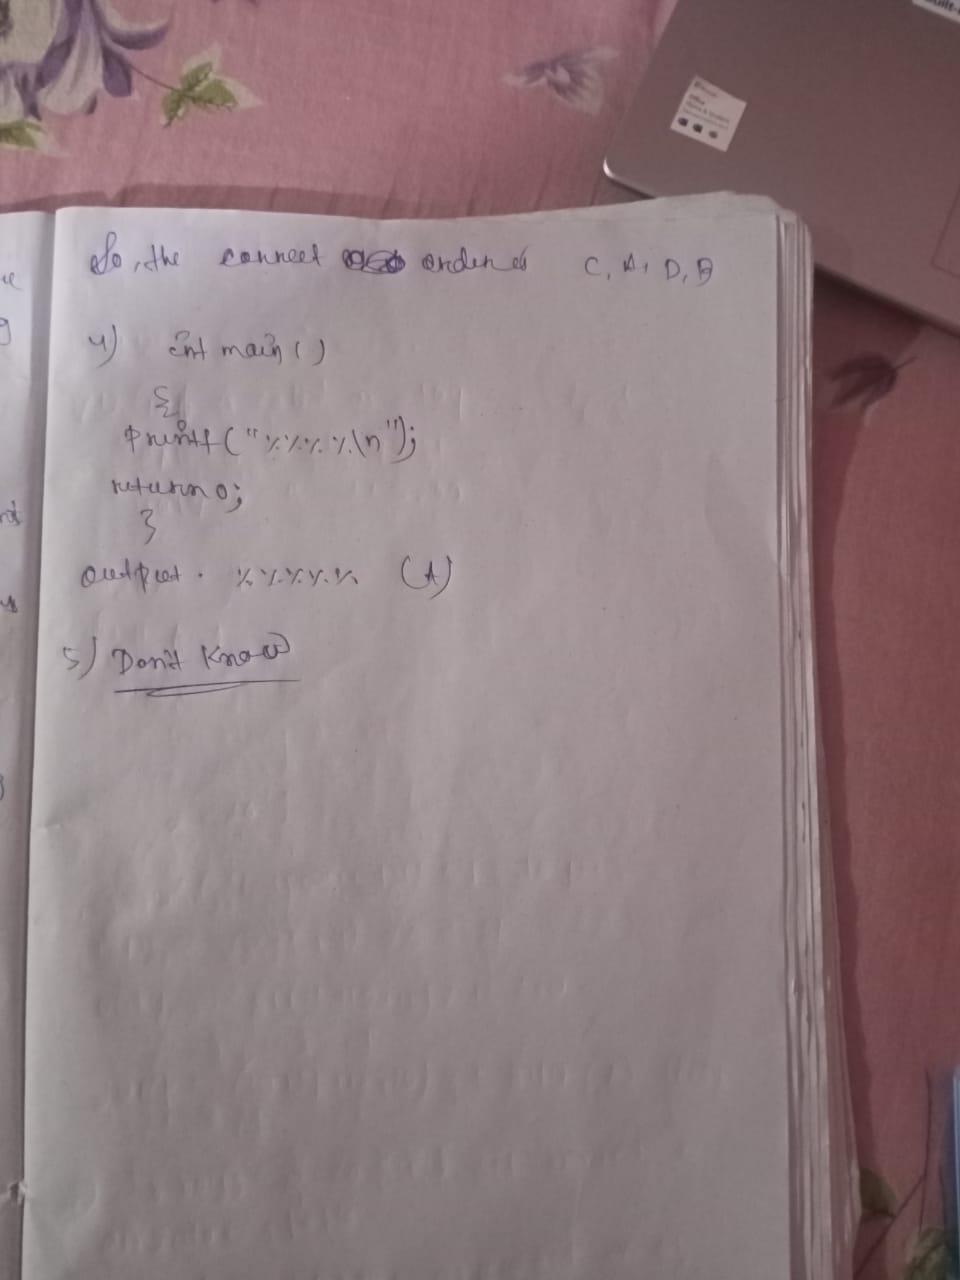 So, the correct order is C, A, D, B
4) int main()
{
printf("%%%%\n");
return 0;
}
output. %%%%% (A)
5) Don't Know